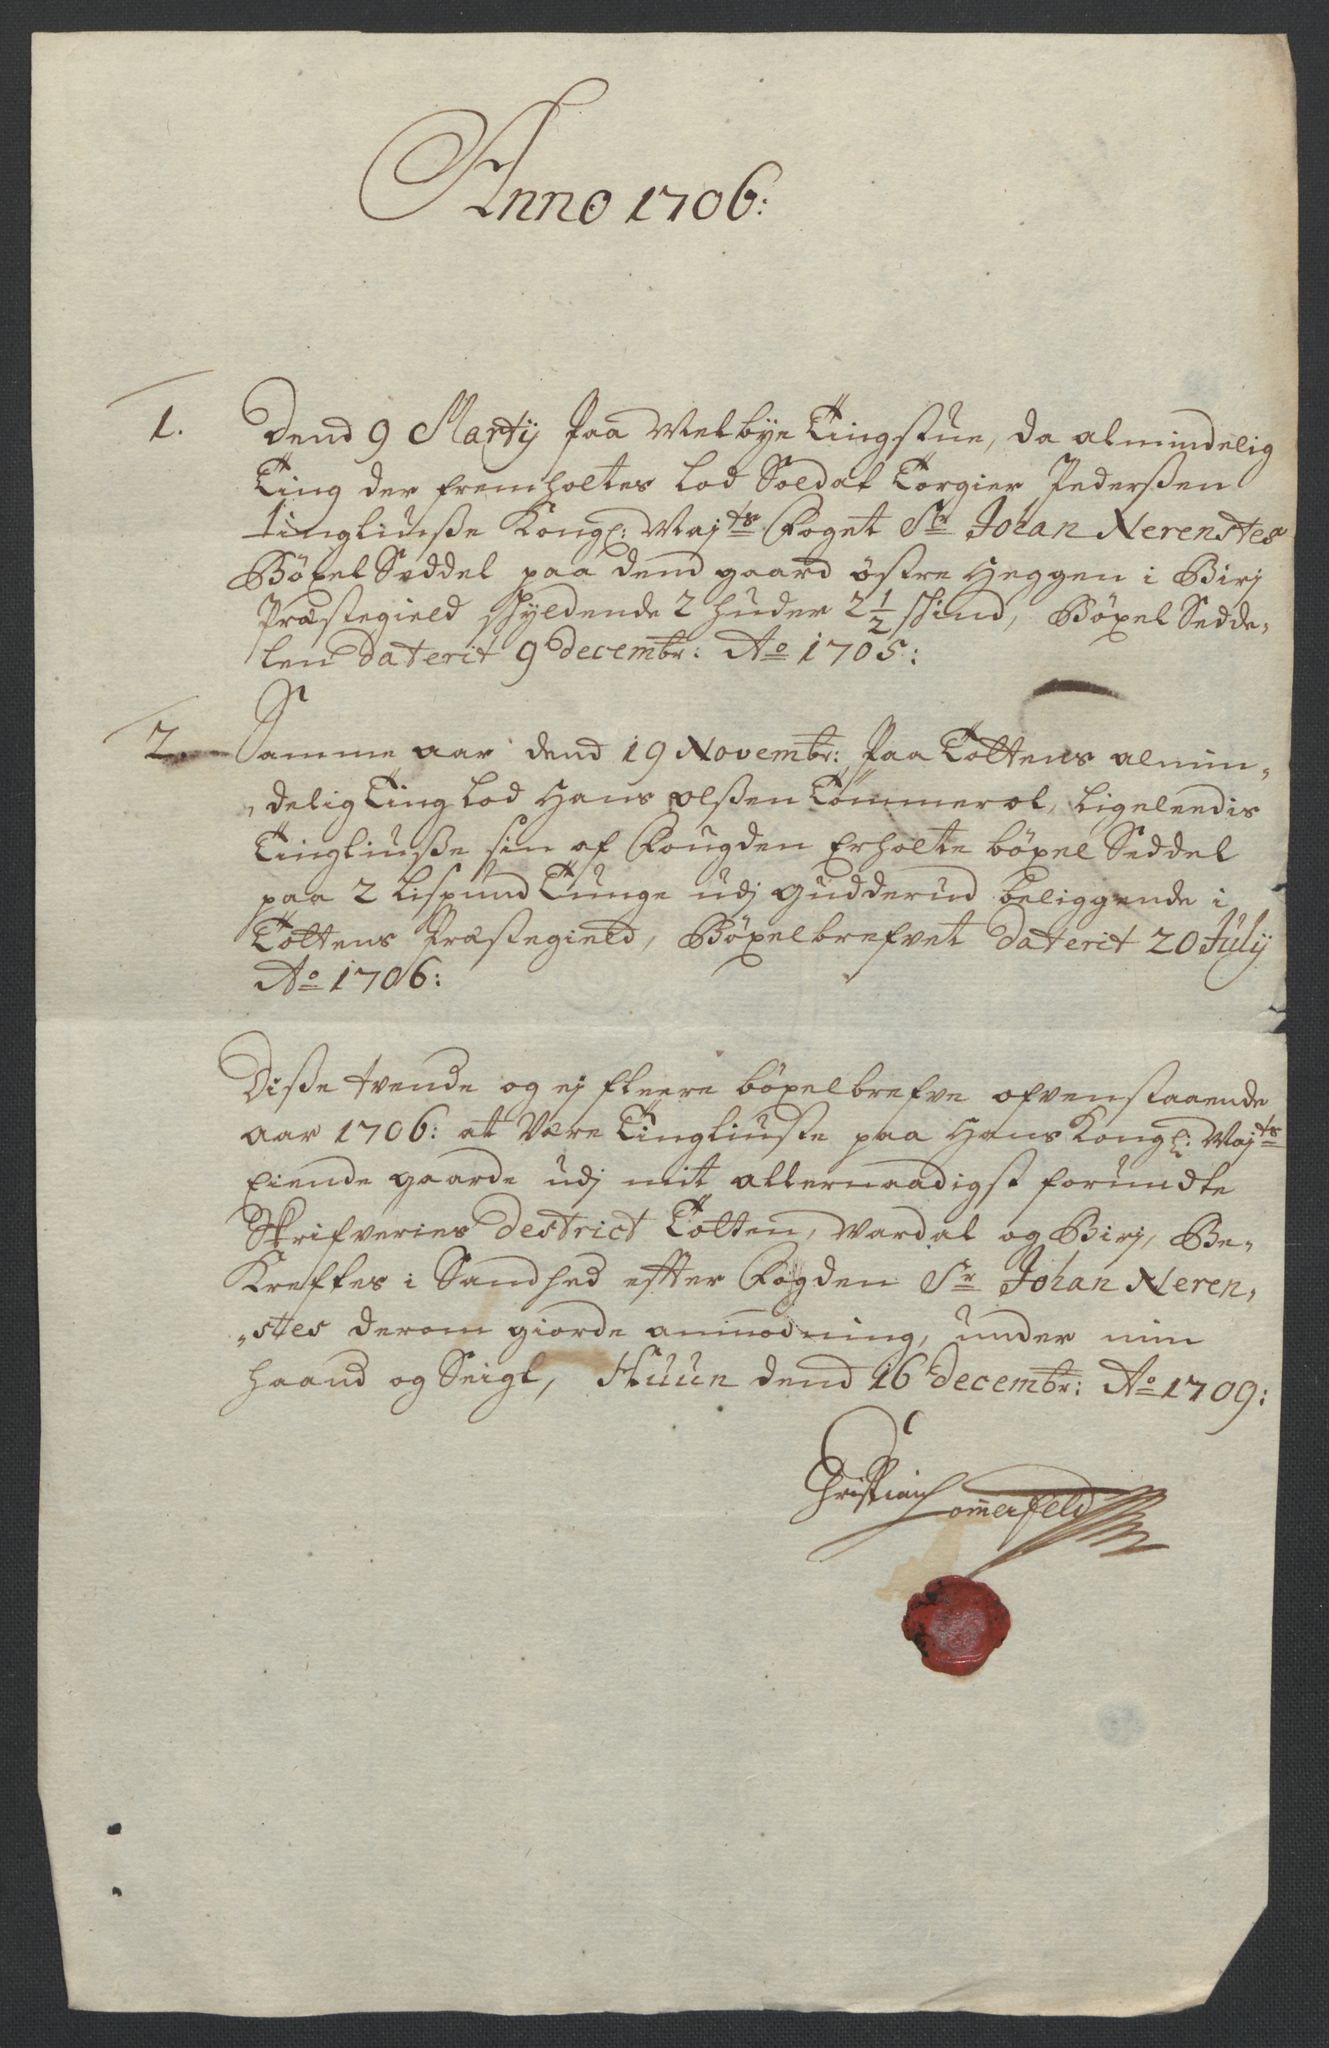 Anno 1706:
1. Dend 9 Martij Paa Melbye Tingstue, da almindelig
Ting der fremholtes lod Soldat Torgier Pederßen
tingliuße Kongl: Maj:ts Foget Sr Johan Nerenstes
Böxel Seddel paa dend gaard östre Heggen i Birj
Præstegield skyldende 2 huder 2 1/2 skind, Böxel Sedde,
len daterit 9 decembr: Ao 1705:
2. Samme aar dend 19 Novembr: Paa Tottens almin,
,delig Ting lod Hans olßen Tömmerol, ligeleedis
Tingliuße sin af Fougden Erholte böxel Seddel
paa 2 Lispund Tunge udj Gudderud beliggende i
Tottens Præstegield, Böxelbrefvet daterit 20 July
Ao 1706:
Diße tvende og ej fleere böxelbrefve ofvenstaaende
aar 1706: at være Tingliuste paa Hans Kongl: Maj:ts
Eiende gaarde udj mit allernaadigst forundte
Skrifveries destrict Totten, Wardal og Birj, Be,
Kreftes i Sandhed efter Fogden Sr Johan Neren,
,stes derom giorde anmodning, under min
haand og Seigl, Huun dend 16 decembr: Ao 1709:
Christian Sommerfeld